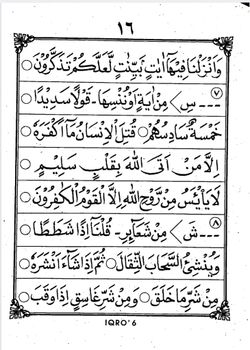 ١٦
وَاَنْزَلْنَا فِيْهَآ اٰيٰتٍ بَيِّنٰتٍ لَّعَلَّكُمْ تَذَكَّرُوْنَ ○
٧
--- س > مِنْ اٰيَةٍ اَوْ نُنْسِهَا - قَوْلًا سَدِيْدًا ○
خَمْسَةٌ سَادِسُهُمْ ○ قُتِلَ الْاِنْسَانُ مَآ اَكْفَرَهٗ ○
اِلَّا مَنْ اَتَى اللّٰهَ بِقَلْبٍ سَلِيْمٍ ○
لَا يَا۟يْـَٔسُ مِنْ رَّوْحِ اللّٰهِ اِلَّا الْقَوْمُ الْكٰفِرُوْنَ ○
٨
--- ش > مِنْ شَعَآئِرِ - قُلْنَآ اِذًا شَطَطًا ○
وَيُنْشِئُ السَّحَابَ الثِّقَالَ ○ ثُمَّ اِذَا شَآءَ اَنْشَرَهٗ ○
مِنْ شَرِّ مَا خَلَقَ ○ وَمِنْ شَرِّ غَاسِقٍ اِذَا وَقَبَ ○
IQRO' 6